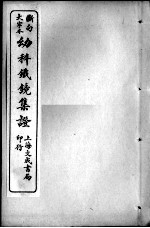 斷句
大字本
幼科鐵鏡集證
上海文成書局
印行